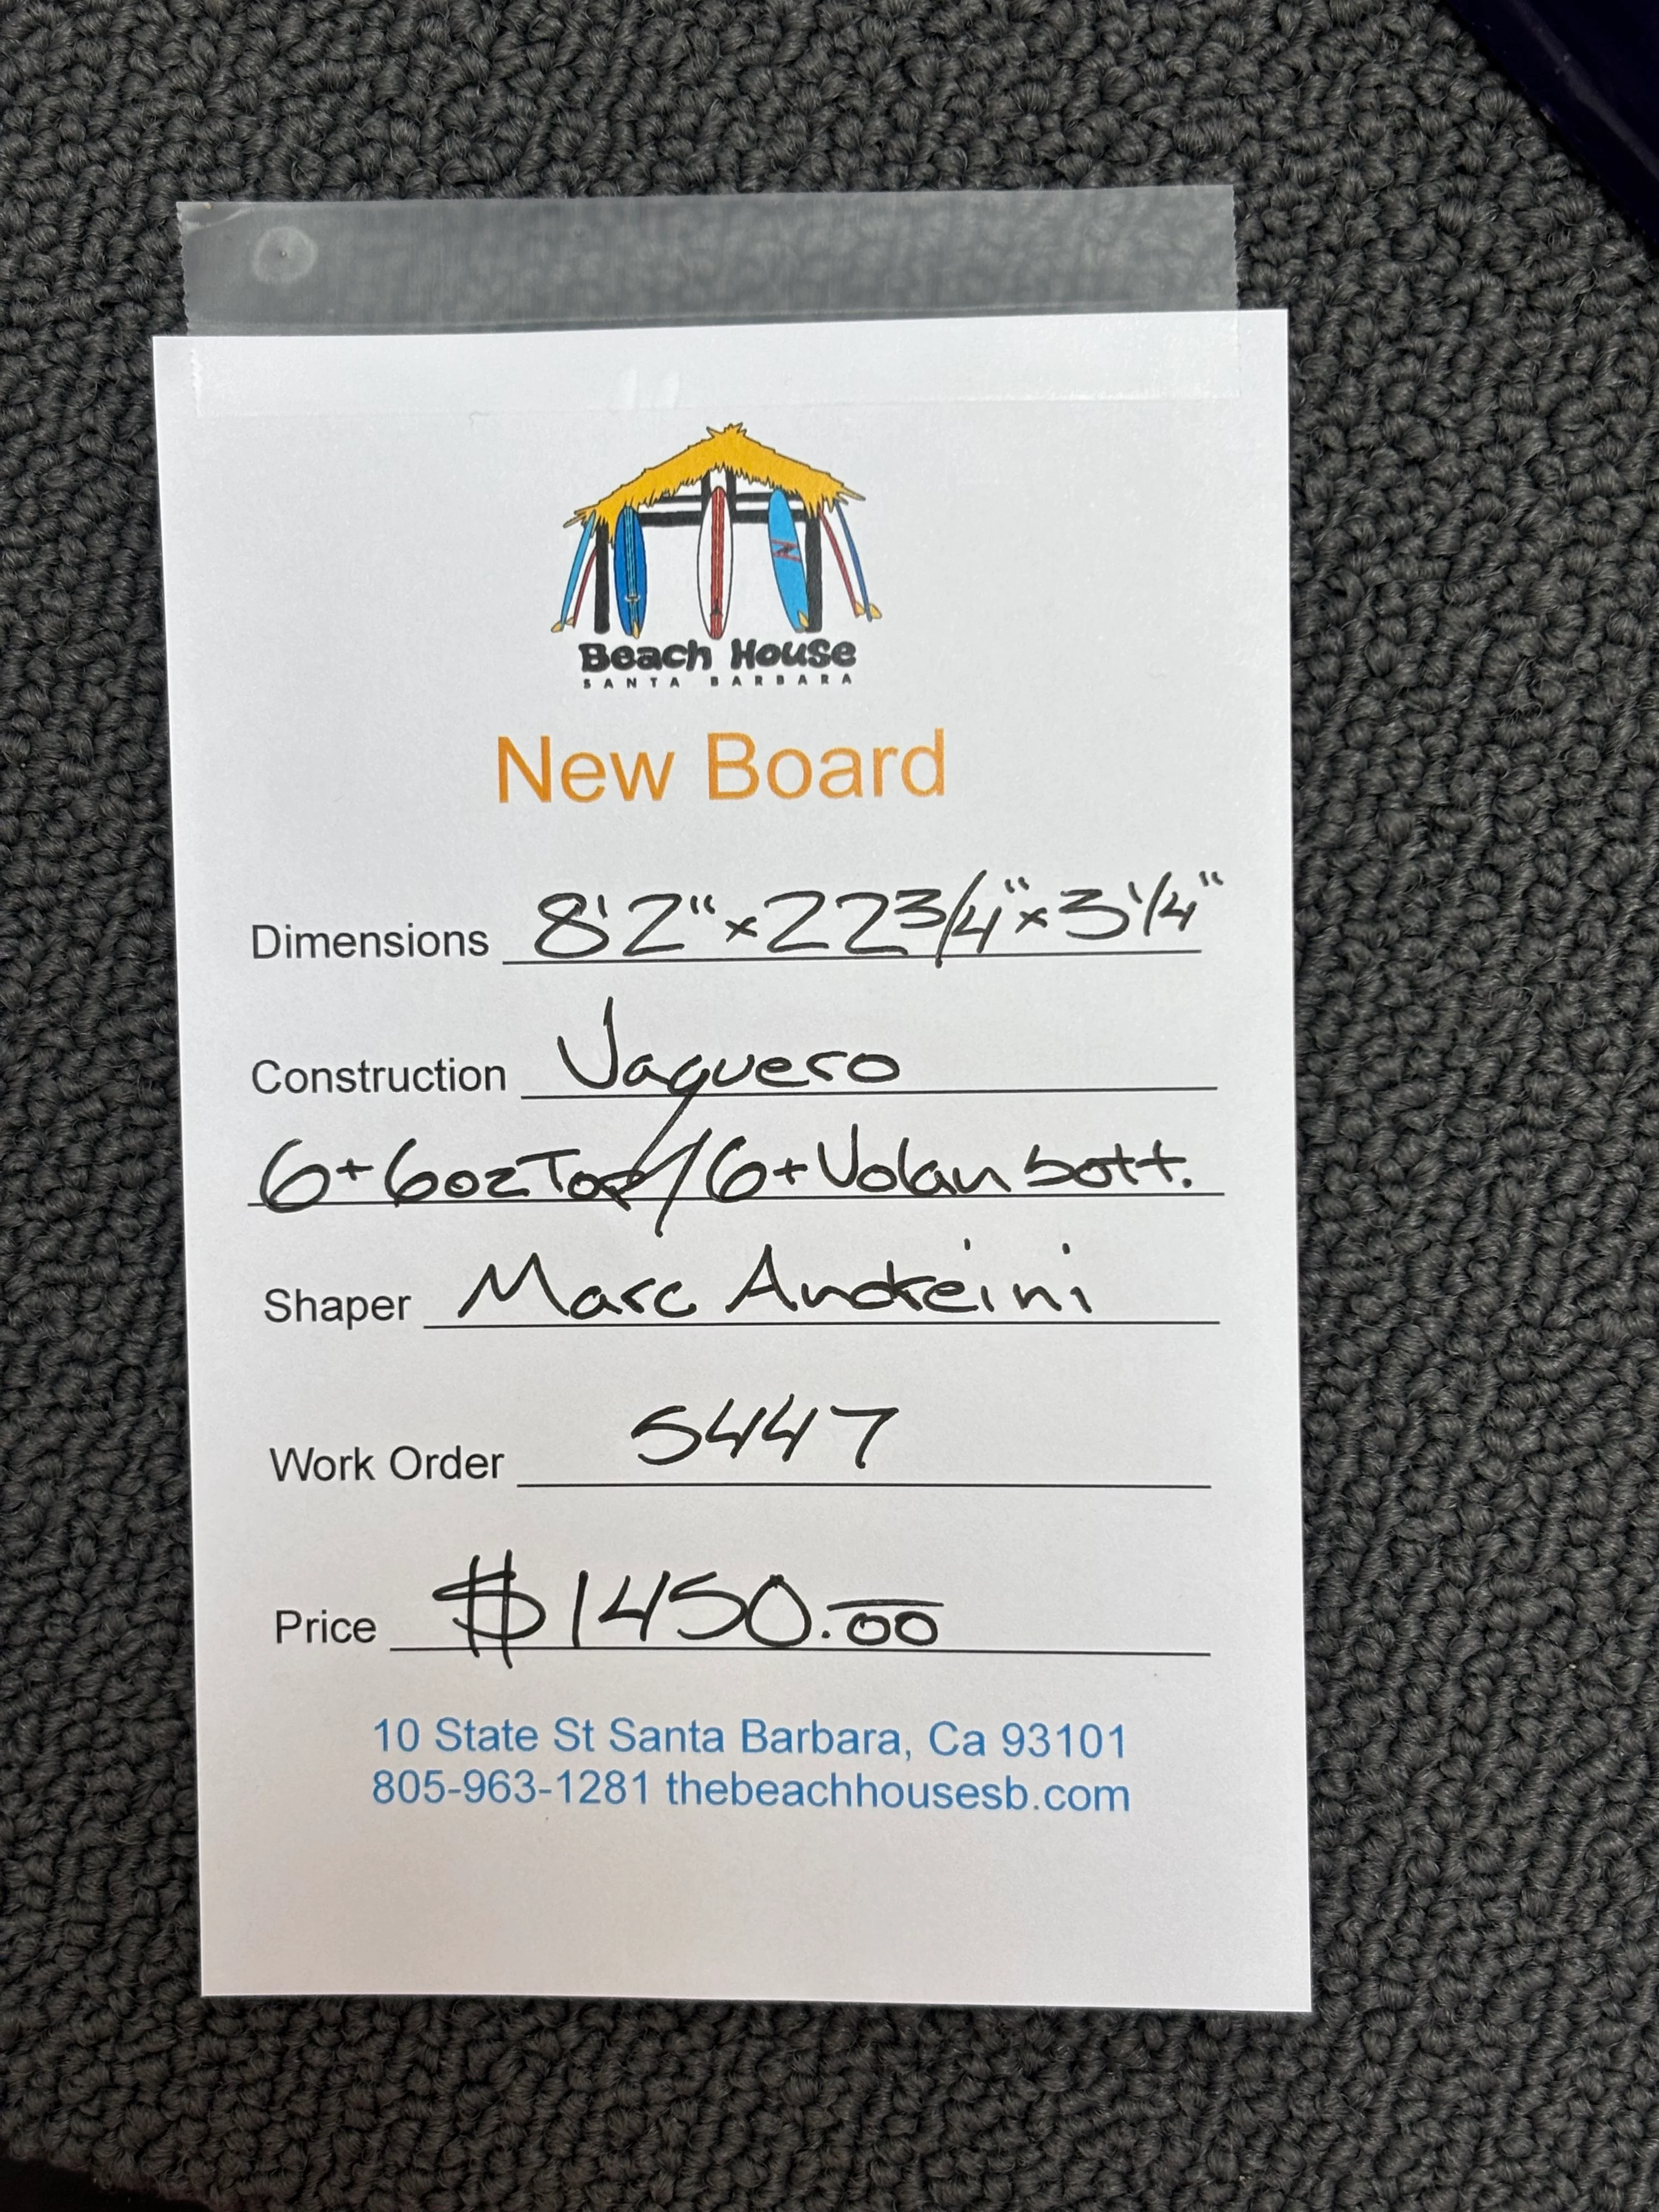 Beach House
SANTA BARBARA
New Board
Dimensions 8'2" x 22 3/4" x 3 1/4"
Construction Vaquero
6+6oz Top/6+Volan bott.
Shaper Marc Andreini
Work Order 5447
Price $1450.00
10 State St Santa Barbara, Ca 93101
805-963-1281 thebeachhousesb.com